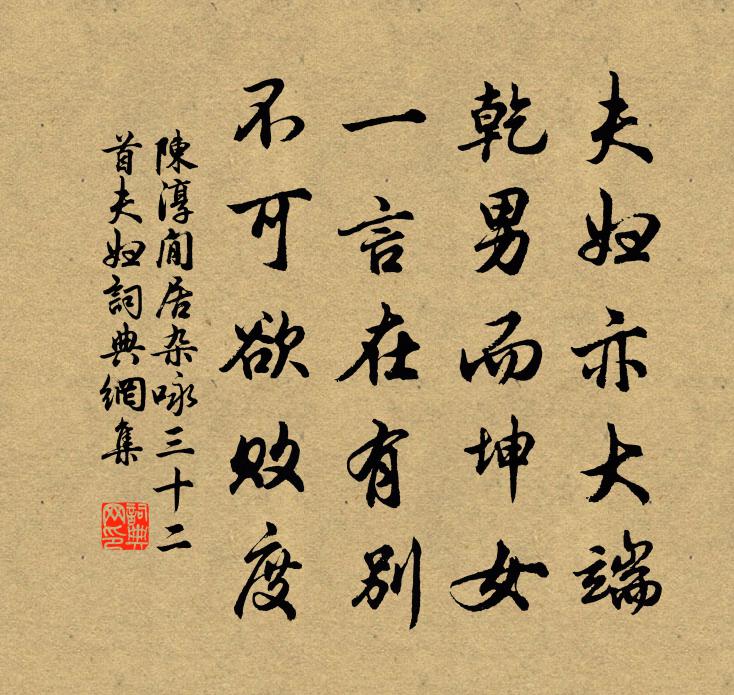 夫妇亦大端
乾男而坤女
一言在有别
不可欲败度
陳淳閒居杂咏三十二
首夫妇詞典網集
詞典
网印